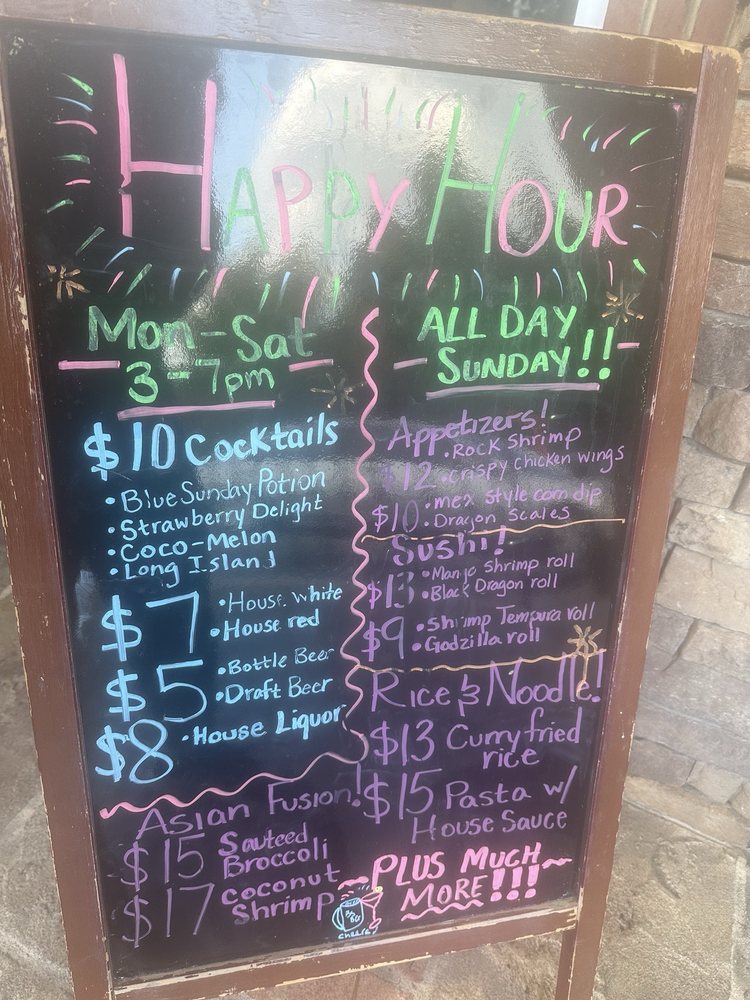 HAPPY HOUR
Mon-Sat
3-7pm
$10 Cocktails
• Blue Sunday Potion
• Strawberry Delight
• Coco-Melon
• Long Island
$7 • House white
• House red
$5 • Bottle Beer
• Draft Beer
$8 • House Liquor
ALL DAY
SUNDAY!!
Appetizers!
• Rock Shrimp
$12 • crispy chicken wings
$10 • mex style corn dip
• Dragon Scales
Sushi!
$13 • Mango Shrimp roll
• Black Dragon roll
$9 • Shrimp Tempura roll
• Godzilla roll
Rice & Noodle!
$13 Curry fried
rice
$15 Pasta w/
House Sauce
Asian Fusion!
$15 Sauteed
Broccoli
$17 coconut
Shrimp
PLUS MUCH
MORE!!!